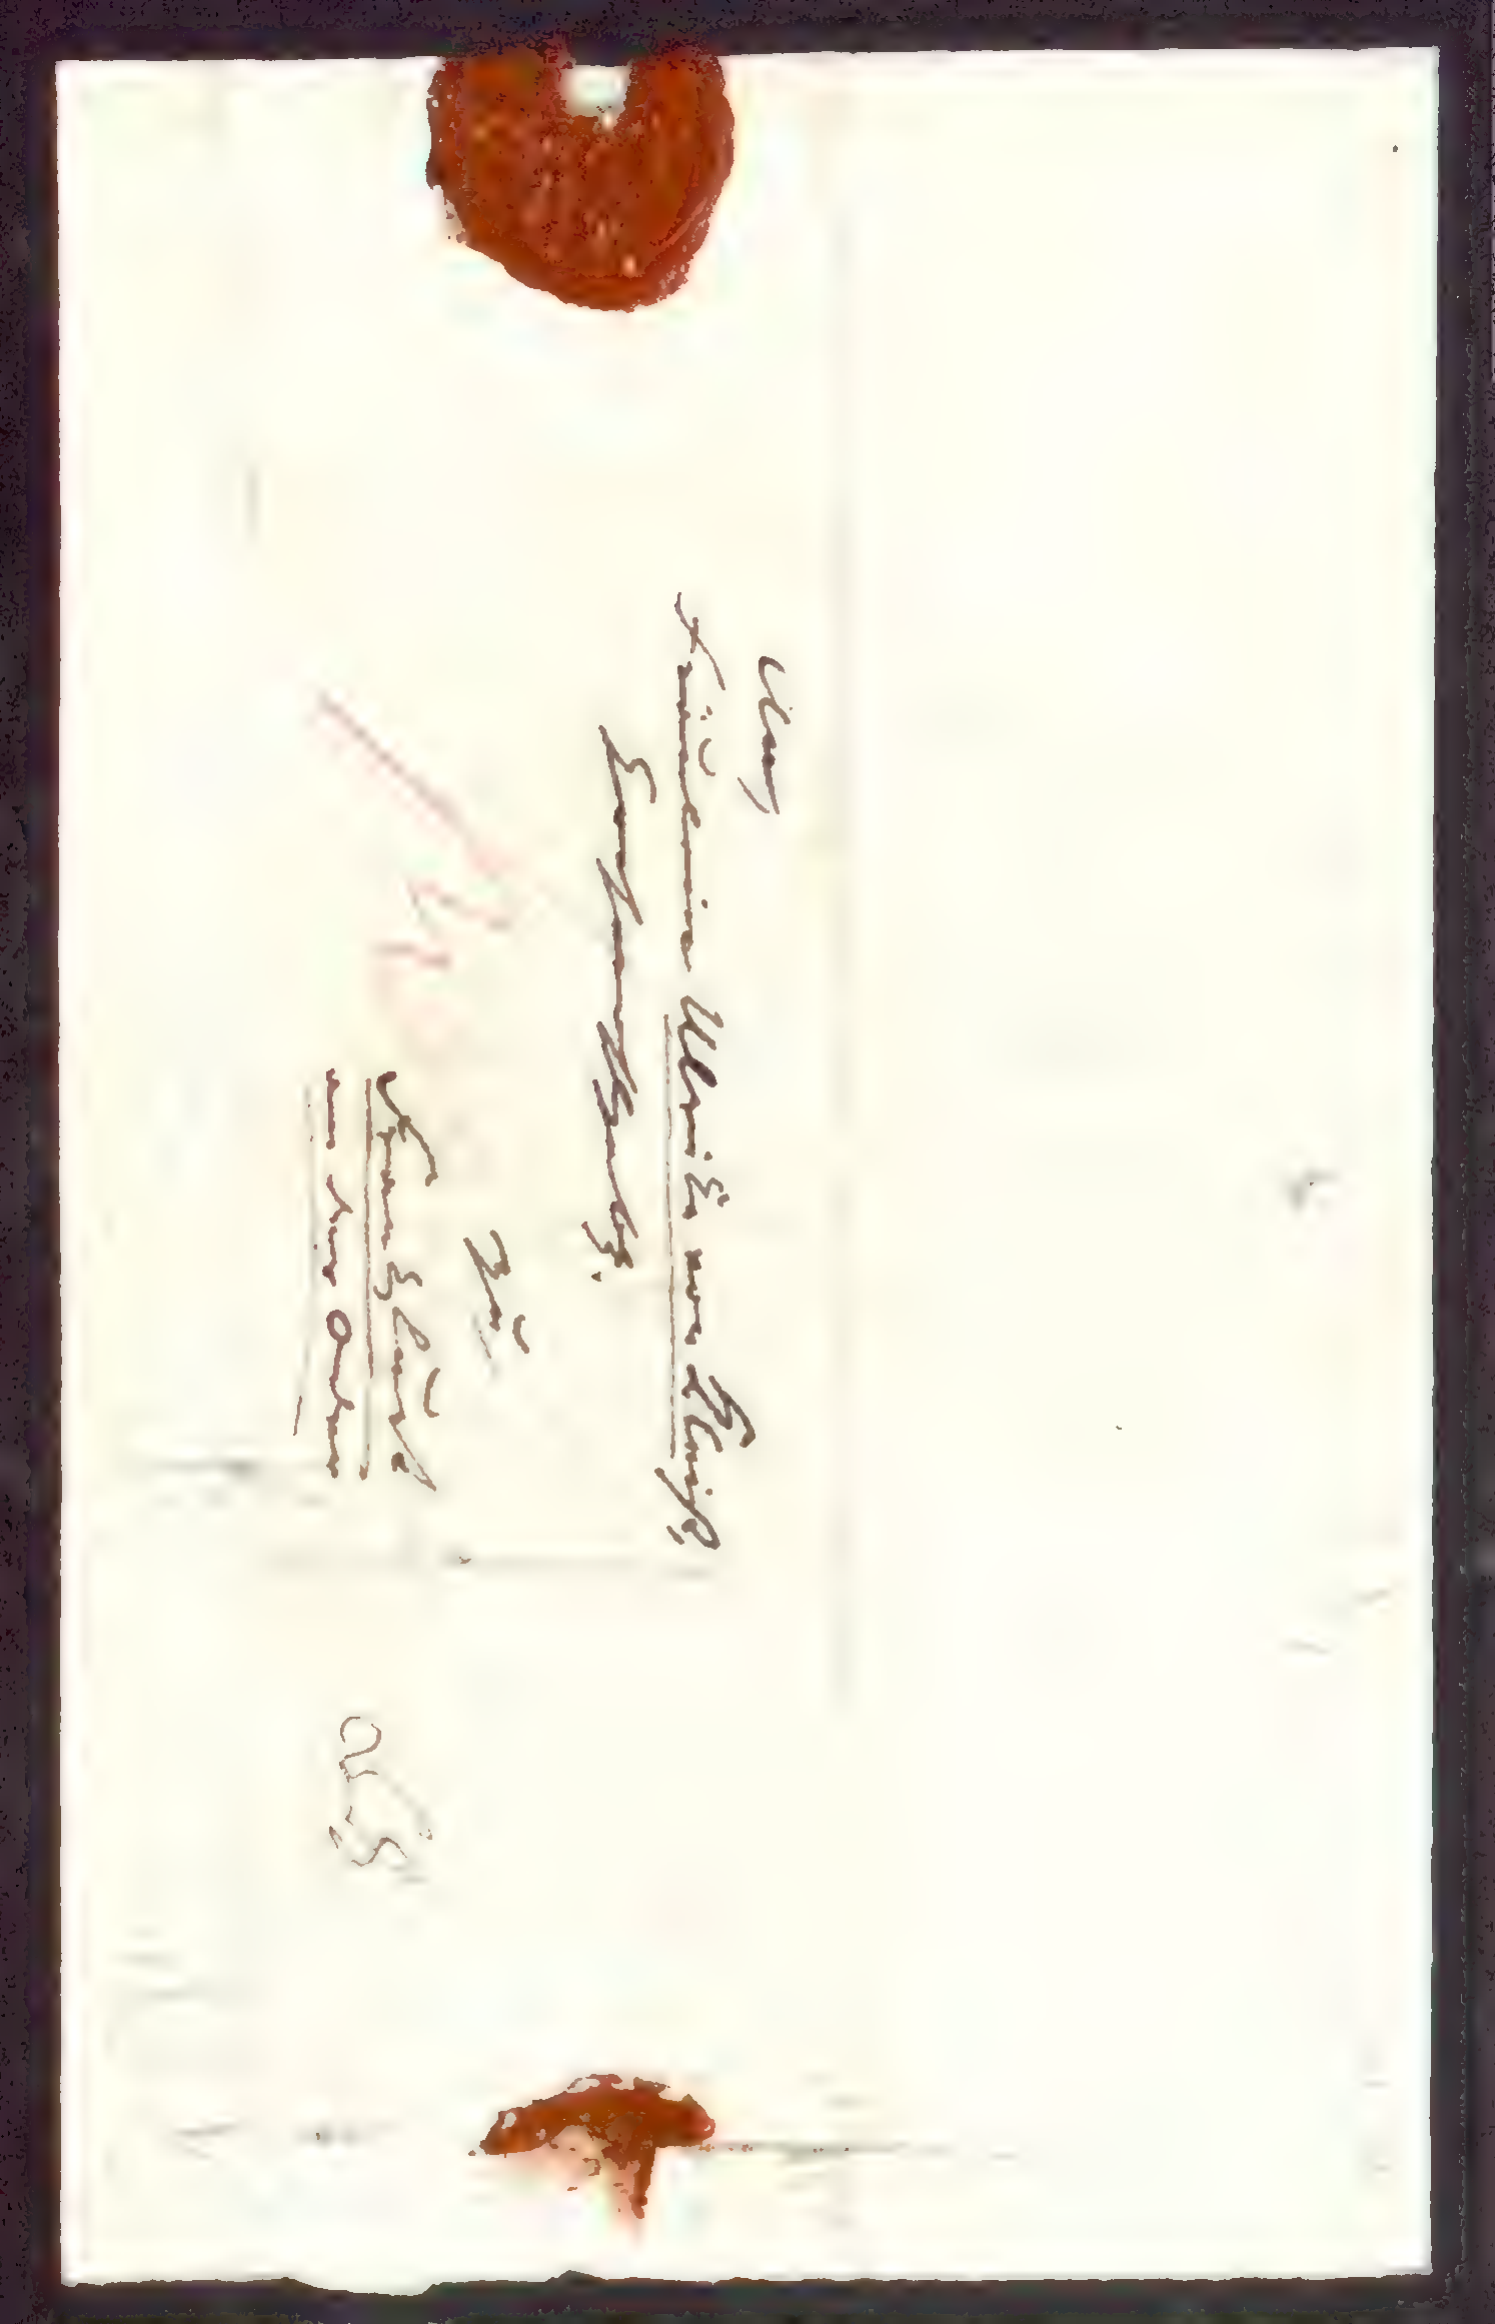 An
Fräulein Ulrike von Kleist,
Hochwohlgeb.
zu
Frankfurt
an der Oder